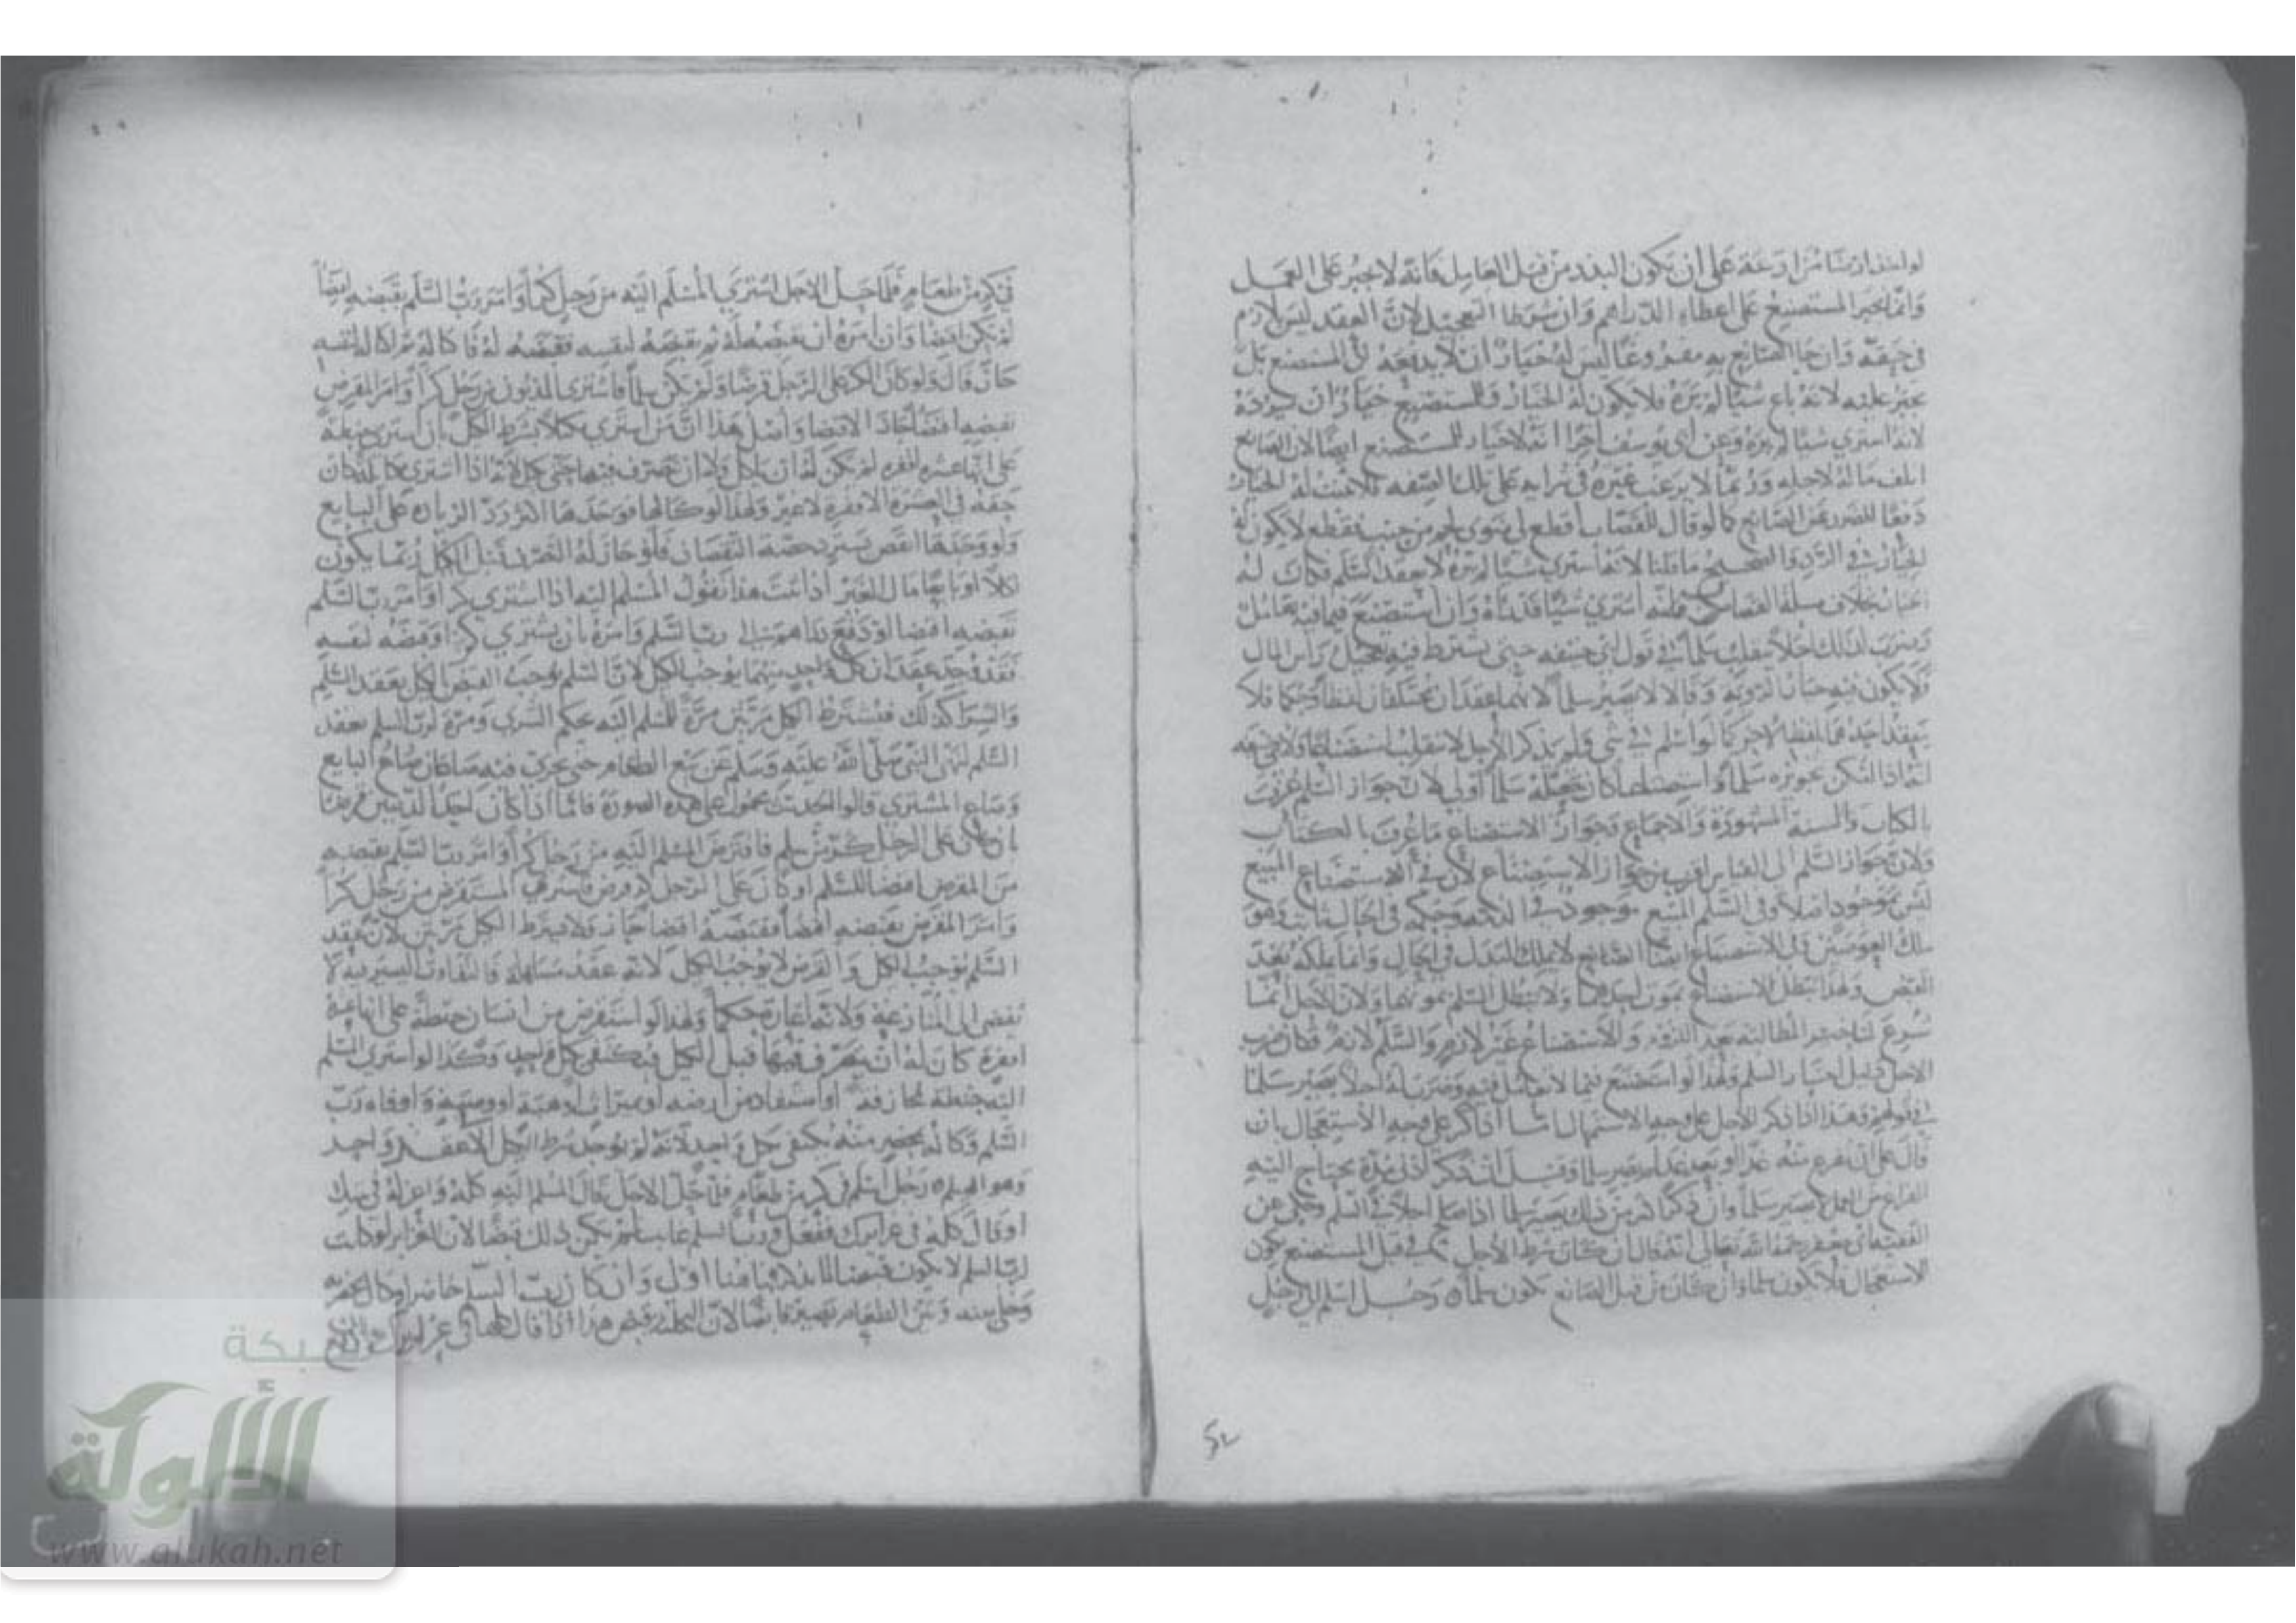 لو اخذ ارضا مزارعة على ان يكون البذر من قبل العامل فانه لا يجبر على العمل
وانما يجبر المستصنع على اعطاء الدراهم وان شرطا التعجيل لان العقد ليس بلازم
في حقه وان جا الصانع به مفروغا ليس له خيار ان لا يدفعه الى المستصنع بل
يجبر عليه لانه باع شيئا لم يره فلا يكون له الخيار وللمستصنع خيار ان
لانه اشترى شيئا لم يره وعن ابي يوسف اخرا انه لا خيار للمستصنع ايضا لان الصانع
اتلف ماله لاجله وربما لا يرغب غيره في شرايه على تلك الصفة فلا يثبت له الخيار
دفعا للضرر عن الصانع كما لو قال للقصاب اقطع لي من جنب فقطع لا يكون له
الخيار في الرد والصحيح ما قلنا لانه اشترى شيئا لم يره لا بعقد السلم فكان له
الخيار بخلاف مسلة القصاب اشترى شيئا قد رآه وان استصنع فيما فيه تعامل
وضرب لذلك اجلا ينقلب سلما في قول ابي حنيفة حتى يشترط فيه تعجيل راس المال
ولا يكون فيه خيار الروية وقالا لا يصير سلما لانهما عقدان مختلفان لفظا وحكما فلا
ينعقد احدهما بلفظ الاخر كما لو اسلم في شي ولم يذكر الاجل لا ينقلب استصناعا ولابي حنيفة
انه اذا امكن تجويزه سلما واستصناعا كان جعله سلما اولى لان جواز السلم عرف
بالكتاب والسنة المشهورة والاجماع وجواز الاستصناع ما عرف بالكتاب
ولان جواز السلم الى القياس اقرب من جواز الاستصناع لان في الاستصناع المبيع
ليس بموجود اصلا وفي السلم المبيع موجود في الذمة وحكمه في الحال ثابت وهو
ملك العوضين وفي الاستصناع الصانع لا يملك البدل في الحال وانما يملكه بعد
القبض ولهذا يبطل الاستصناع بموت احدهما ولا يبطل السلم بموتهما ولان الاجل انما
شرع لتاخير المطالبة بعد اللزوم والاستصناع غير لازم والسلم لازم فكان ضرب
الاجل دليل السلم ولهذا لو استصنع فيما لا تعامل فيه وضرب له اجلا يصير سلما
في قولهم وهذا اذا ذكر الاجل على وجه الاستمهال اما اذا ذكر على وجه الاستعجال بان
قال على ان تفرغ منه غدا او بعد غد لا يصير سلما وقيل ان ذكر ادنى مدة يحتاج اليه
الفراغ من العمل لا يصير سلما وان ذكر اكثر من ذلك يصير سلما اذا صلح اجلا في السلم وحكي عن
الفقيه ابي جعفر رحمه الله تعالى انه قال ان كان شرط الاجل من قبل المستصنع يكون
الاستعجال فلا يكون سلما وان كان من قبل الصانع يكون سلما رجل اسلم الى رجل
في كر من طعام فلما حل الاجل اشترى المسلم اليه من رجل كرا وامر رب السلم بقبضه
لم يكن اقتضا وان امره ان يقبضه له ثم يقبضه لنفسه فقبضه له فاكتاله ثم اكتاله لنفسه
جاز قال ولو كان الكر على الرجل قرضا ولم يكن سلما فاشترى المديون من رجل كرا وامر المقرض
بقبضه اقتضا جاز الاقتضا واصل هذا ان من اشترى مكيلا بشرط الكيل بان اشترى حنطة
على انها عشرة اقفزة لم يكن له ان ياكل ولا ان يتصرف فيها حتى يكيل لانه اذا اشترى كان
حقه في العشرة الاقفزة لا غير ولهذا لو كالها فوجدها اكثر رد الزيادة على البايع
ولو وجدها انقص يسترد حصة النقصان فلو جاز له التصرف قبل الكيل ربما يكون
اكلا او بايعا مال الغير اذا ثبت هذا نقول المسلم اليه اذا اشترى كرا وامر رب السلم
بقبضه اقتضا او دفع دراهم الى رب السلم وامره بان يشتري كرا وقبضه لنفسه
فقد وجد عقدان كل واحد منهما يوجب الكيل لان السلم يوجب القبض بالكيل بعقد السلم
والشرا كذلك فيشترط الكيل مرتين مرة للمسلم اليه بحكم الشرى ومرة لرب السلم بعقد
السلم لنهي النبي صلى الله عليه وسلم عن بيع الطعام حتى يجري فيه صاعان صاع البايع
وصاع المشتري قالوا الحديث محمول على هذه الصورة فاما اذا كان احد الدينين قرضا
بان كان على الرجل كر من سلم فاقترض المسلم اليه من رجل كرا وامر رب السلم بقبضه
من المقرض اقتضا للسلم او كان على الرجل كر قرض فاشترى المستقرض من رجل كرا
وامر المقرض بقبضه اقتضا فقبضه اقتضا جاز ولا يشترط الكيل مرتين لان عقد
السلم يوجب الكيل والقرض لا يوجب الكيل لانه عقد مساهلة فالتفاوت اليسير فيه لا
يفضي الى المنازعة ولانه اعارة حكما ولهذا لو استقرض من انسان حنطة على انها عشرة
اقفزة كان له ان يتصرف فيها قبل الكيل فيكتفى بكيل واحد وكذا لو اشترى المسلم
اليه حنطة مجازفة او استفاد من ارضه او بميراث او هبة او وصية واوفاه رب
السلم وكاله بحضرته يكتفى بكيل واحد لانه لم يوجد شرط الكيل الا عقد واحد
وهو السلم رجل اسلم في كر من طعام فلما حل الاجل قال للمسلم اليه كله واعزله في بيتك
او قال كله في غرايرك ففعل ورب السلم غايب لم يكن ذلك قبضا لان الغراير لو كانت
لرب السلم لا يكون قبضا فهذا اولى وان كان رب السلم حاضرا وكال بحضرته
وخلى بينه وبين الطعام يصير قابضا لان التخلية قبض هذا اذا قال
شبكة
الألوكة
www.alukah.net